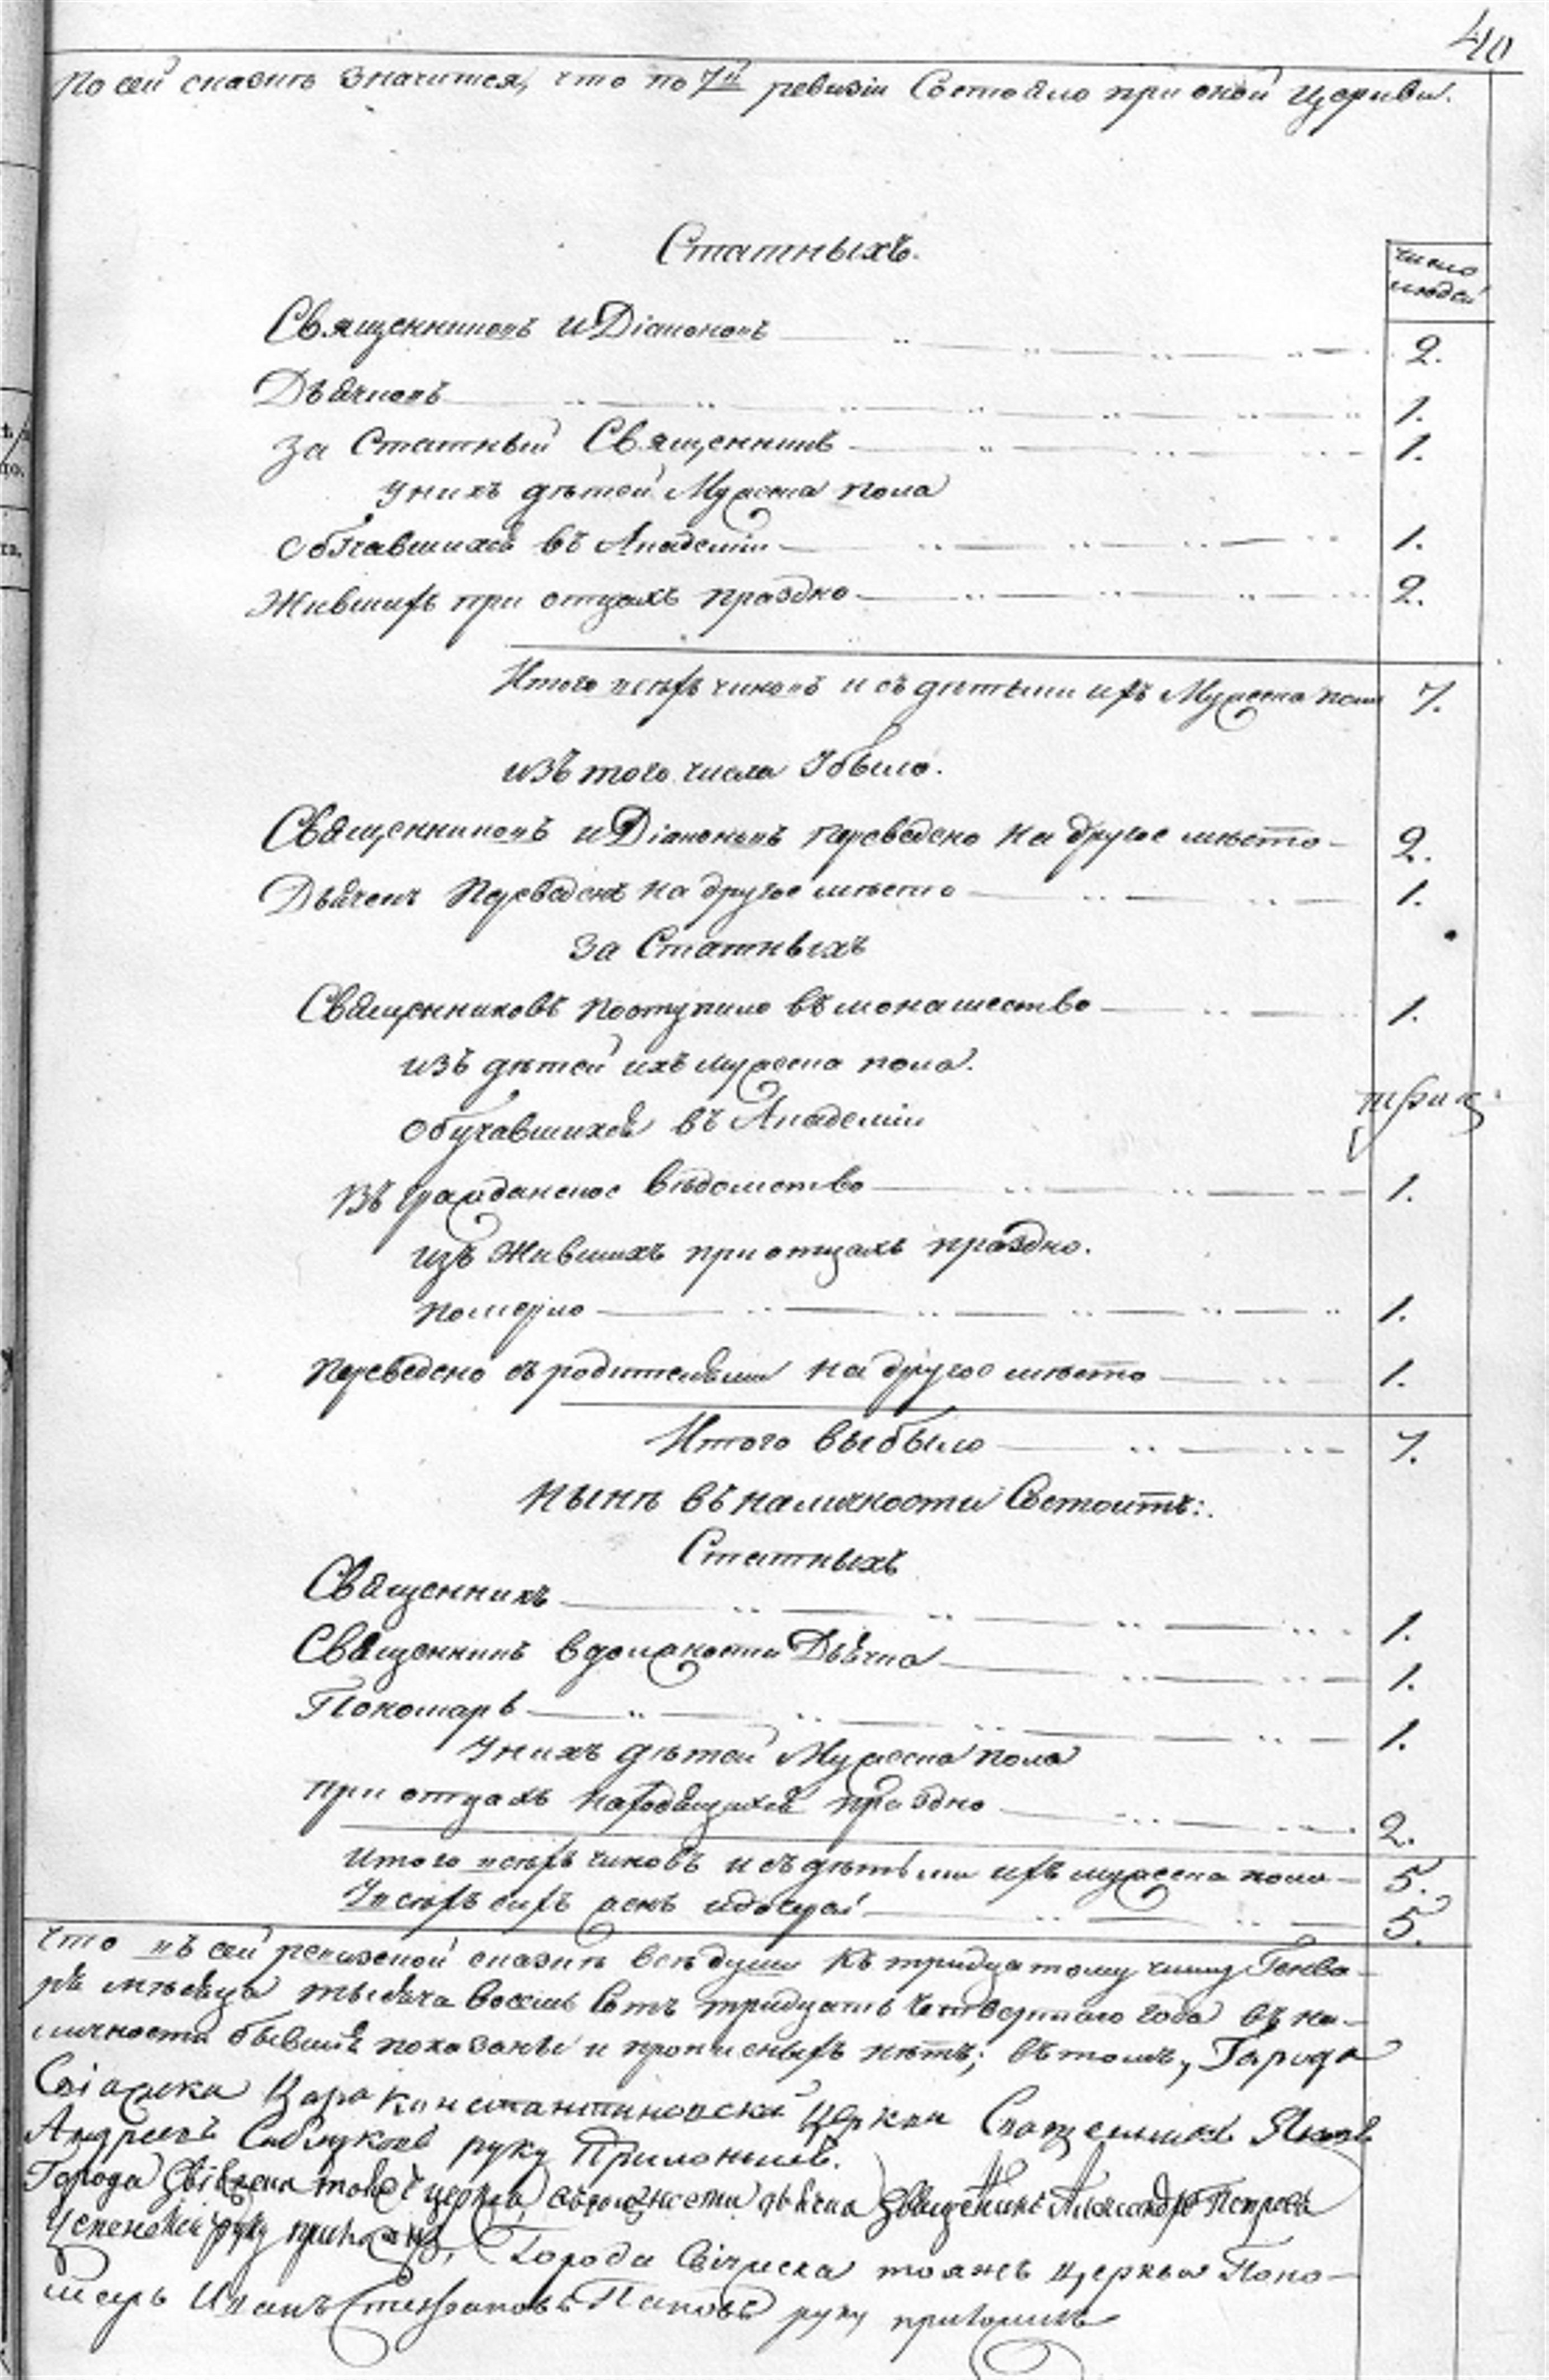 40
По сей сказкѣ значится, что по 7й ревизіи Состояло при оной Церкви.
Статныхъ.
число
людей
Священниковъ и Діаконовъ 2.
Дьячковъ 1.
За Статный Священникъ 1.
У нихъ дѣтей Мужеска пола
Обучавшихся въ Академіи 1.
Жившихъ при отцахъ праздно 2.
Итого всѣхъ чиновъ и съ дѣтьми ихъ Мужеска пола 7.
изъ того числа Убыло.
Священниковъ и Діаконовъ переведено на другое мѣсто 2.
Дьячекъ Переведенъ на другое мѣсто 1.
За Статныхъ
Священниковъ поступило въ монашество 1.
изъ дѣтей ихъ мужеска пола.
Обучавшихся въ Академіи
Въ гражданское вѣдомство 1.
изъ Жившихъ при отцахъ праздно.
померло 1.
Переведено съ родителями на другое мѣсто 1.
Итого выбыло 7.
нынѣ въ наличности Состоитъ:
Статныхъ
Священникъ 1.
Священникъ в должности Дьячка 1.
Пономарь 1.
У нихъ дѣтей Мужеска пола
При отцахъ находящихся праздно 2.
Итого всѣхъ чиновъ и съ дѣтьми ихъ мужеска пола 5.
У всѣхъ сихъ женъ и дочерей 5.
Что въ сей ревизской сказкѣ всѣ души къ тридцатому числу Генва-
ря мѣсяца тысяча восемь сотъ тридцать четвертаго года въ на-
личности бывшія показаны и прописныхъ нѣтъ; въ томъ, Города
Свіяжска Царе Константиновской Церкви Священникъ Яковъ
Андреевъ руку Приложилъ.
Города Свіяжска тойже церкви въ должности дьячка Священникъ Александръ Петровъ
Успенскій руку приложилъ, Города Свіяжска тояжъ церкви Поно-
марь Иванъ Поповъ руку приложилъ